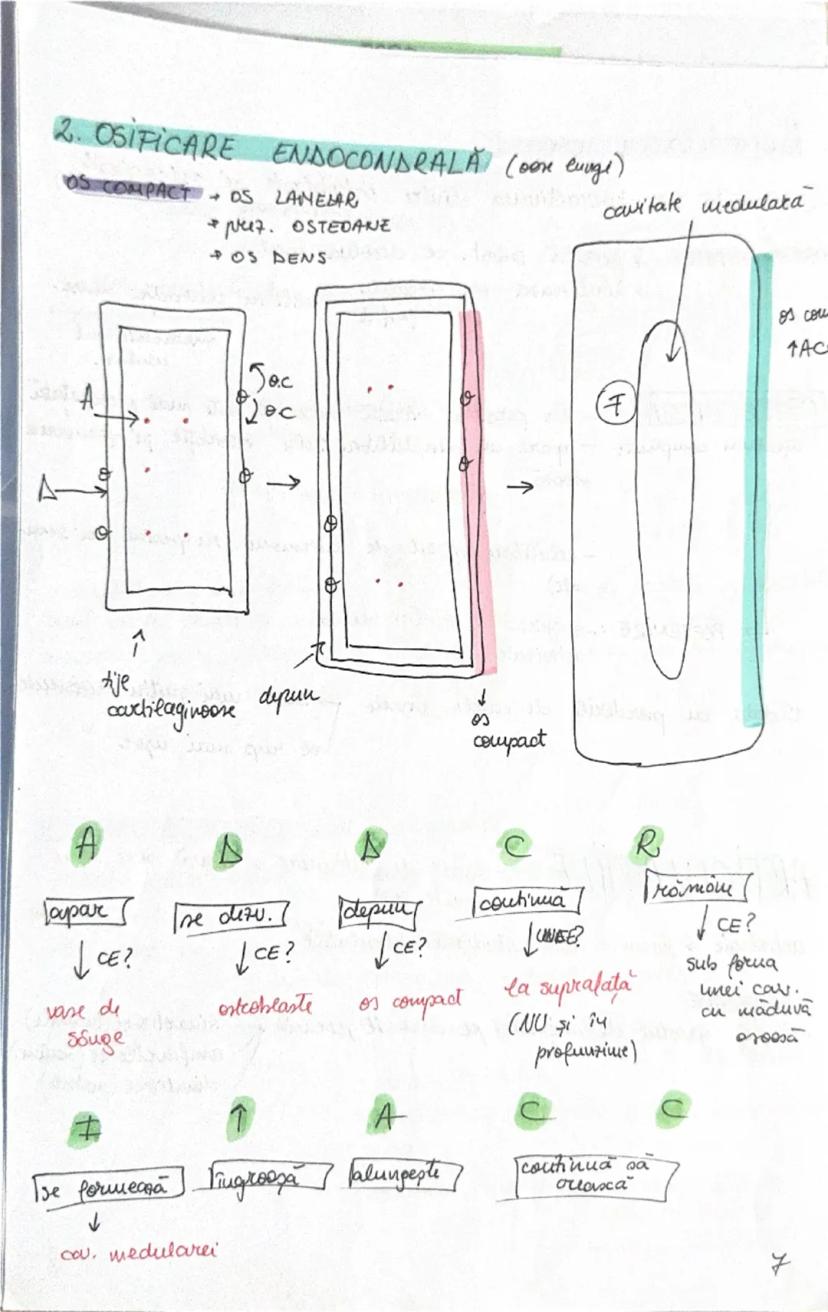 2. OSIFICARE ENDOCONDRALĂ (oase lungi)
OS COMPACT → OS LAMELAR
→ prez. OSTEOANE
→ OS DENS
cavitate medulară
os com
↑AC
A
OC
OC
D
F
tije
cartilaginoase
depun
os
compact
A D D C R
apar
se dezv.
depun
continuă
rămâne
CE?
CE?
CE?
UNDE?
CE?
vase de
sânge
osteoblaste
os compact
la suprafață
(NU și în
profunzime)
sub forma
unei cav.
cu măduvă
osoasă
F ↑ A C C
se formează
îngroașă
alungește
continuă să
crească
cav. medularei
7